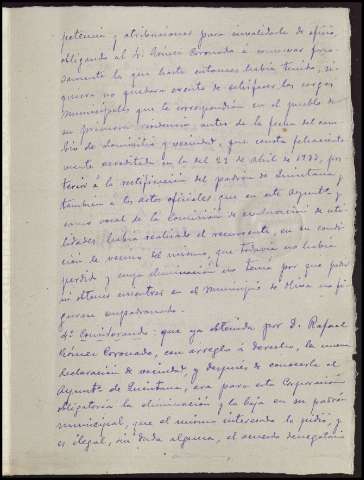 potencia y atribuciones para invalidarla de oficio,
obligando al Sr. Gómez Coronado á conservar forzo-
samente la que hasta entonces había tenido, si-
quiera no quedara exento de satisfacer las cargas
municipales que le correspondían en el pueblo de
su primera residencia, antes de la fecha del cam-
bio de domicilio y vecindad, que consta feliaciente-
mente acreditada en la del 22 de Abril de 1933, pos-
terior á la rectificación del padrón de Quintana y
también á los actos oficiales que en este Ayuntº y
como vocal de la Comisión de evaluación de uti-
lidades, había realizado el recurrente, en su condi-
ción de vecino del mismo, que todavía no había
perdido y cuya eliminación no tenía por que pedir
ni obtener mientras en el Municipio de Oliva no fi-
gurara empadronado.
4º Considerando: que ya obtenida por D. Rafael
Gómez Coronado, con arreglo á derecho, la nueva
declaración de vecindad y después de conocerla el
Ayuntº de Quintana, era para esta Corporación
obligatoria la eliminación y la baja en su padrón
municipal, que el mismo interesado le pidió, y
es ilegal, sin duda alguna, el acuerdo denegatorio